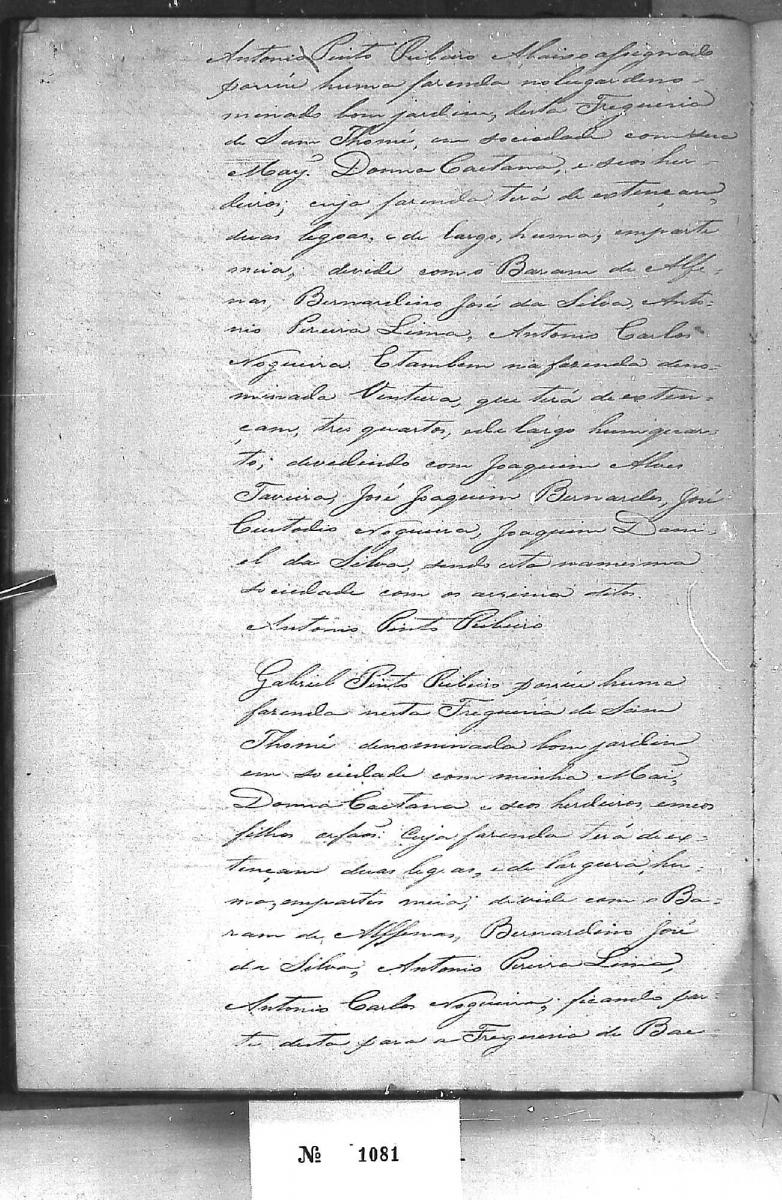 Antonio Pinto Ribeiro Abaixo assignado
possúe huma fazenda no lugar deno-
minado bom jardim, desta Freguezia
de Sam Thomé, em sociedade com sua
May. Donna Caetana, e seos her-
deiros; cuja fazenda terá de extençam,
duas legoas, e de largo, huma; emparte
meia, devide com o Baram de Alfe-
nas, Bernardino José da Silva, Anto-
nio Pereira Lima, Antonio Carlos
Nogueira. E tambem na fazenda deno-
minada Ventura, que terá de exten-
çam, tres quartos, e de largo hum quar-
to; devedindo com Joaquim Alves
Taveira, José Joaquim Bernardes, José
Custodio Nogueira, Joaquim Dani-
el da Silva, sendo esta na mesma
sociedade com os assima ditos.
Antonio Pinto Ribeiro
Gabriel Pinto Ribeiro possúe huma
fazenda nesta Freguezia de Sam
Thomé denominada bom jardim
em sociedade com minha Mãi,
Donna Caetana e seos herdeiros, e meos
filhos orfãos. Cuja fazenda terá de ex-
tençam duas legoas, e de largura, hu-
ma, empartes meia; divide com o Ba-
ram de Alffenas, Bernardino José
da Silva, Antonio Pereira Lima,
Antonio Carlos Nogueira, ficando par-
te desta para a Freguezia de Bae-
Nº 1081